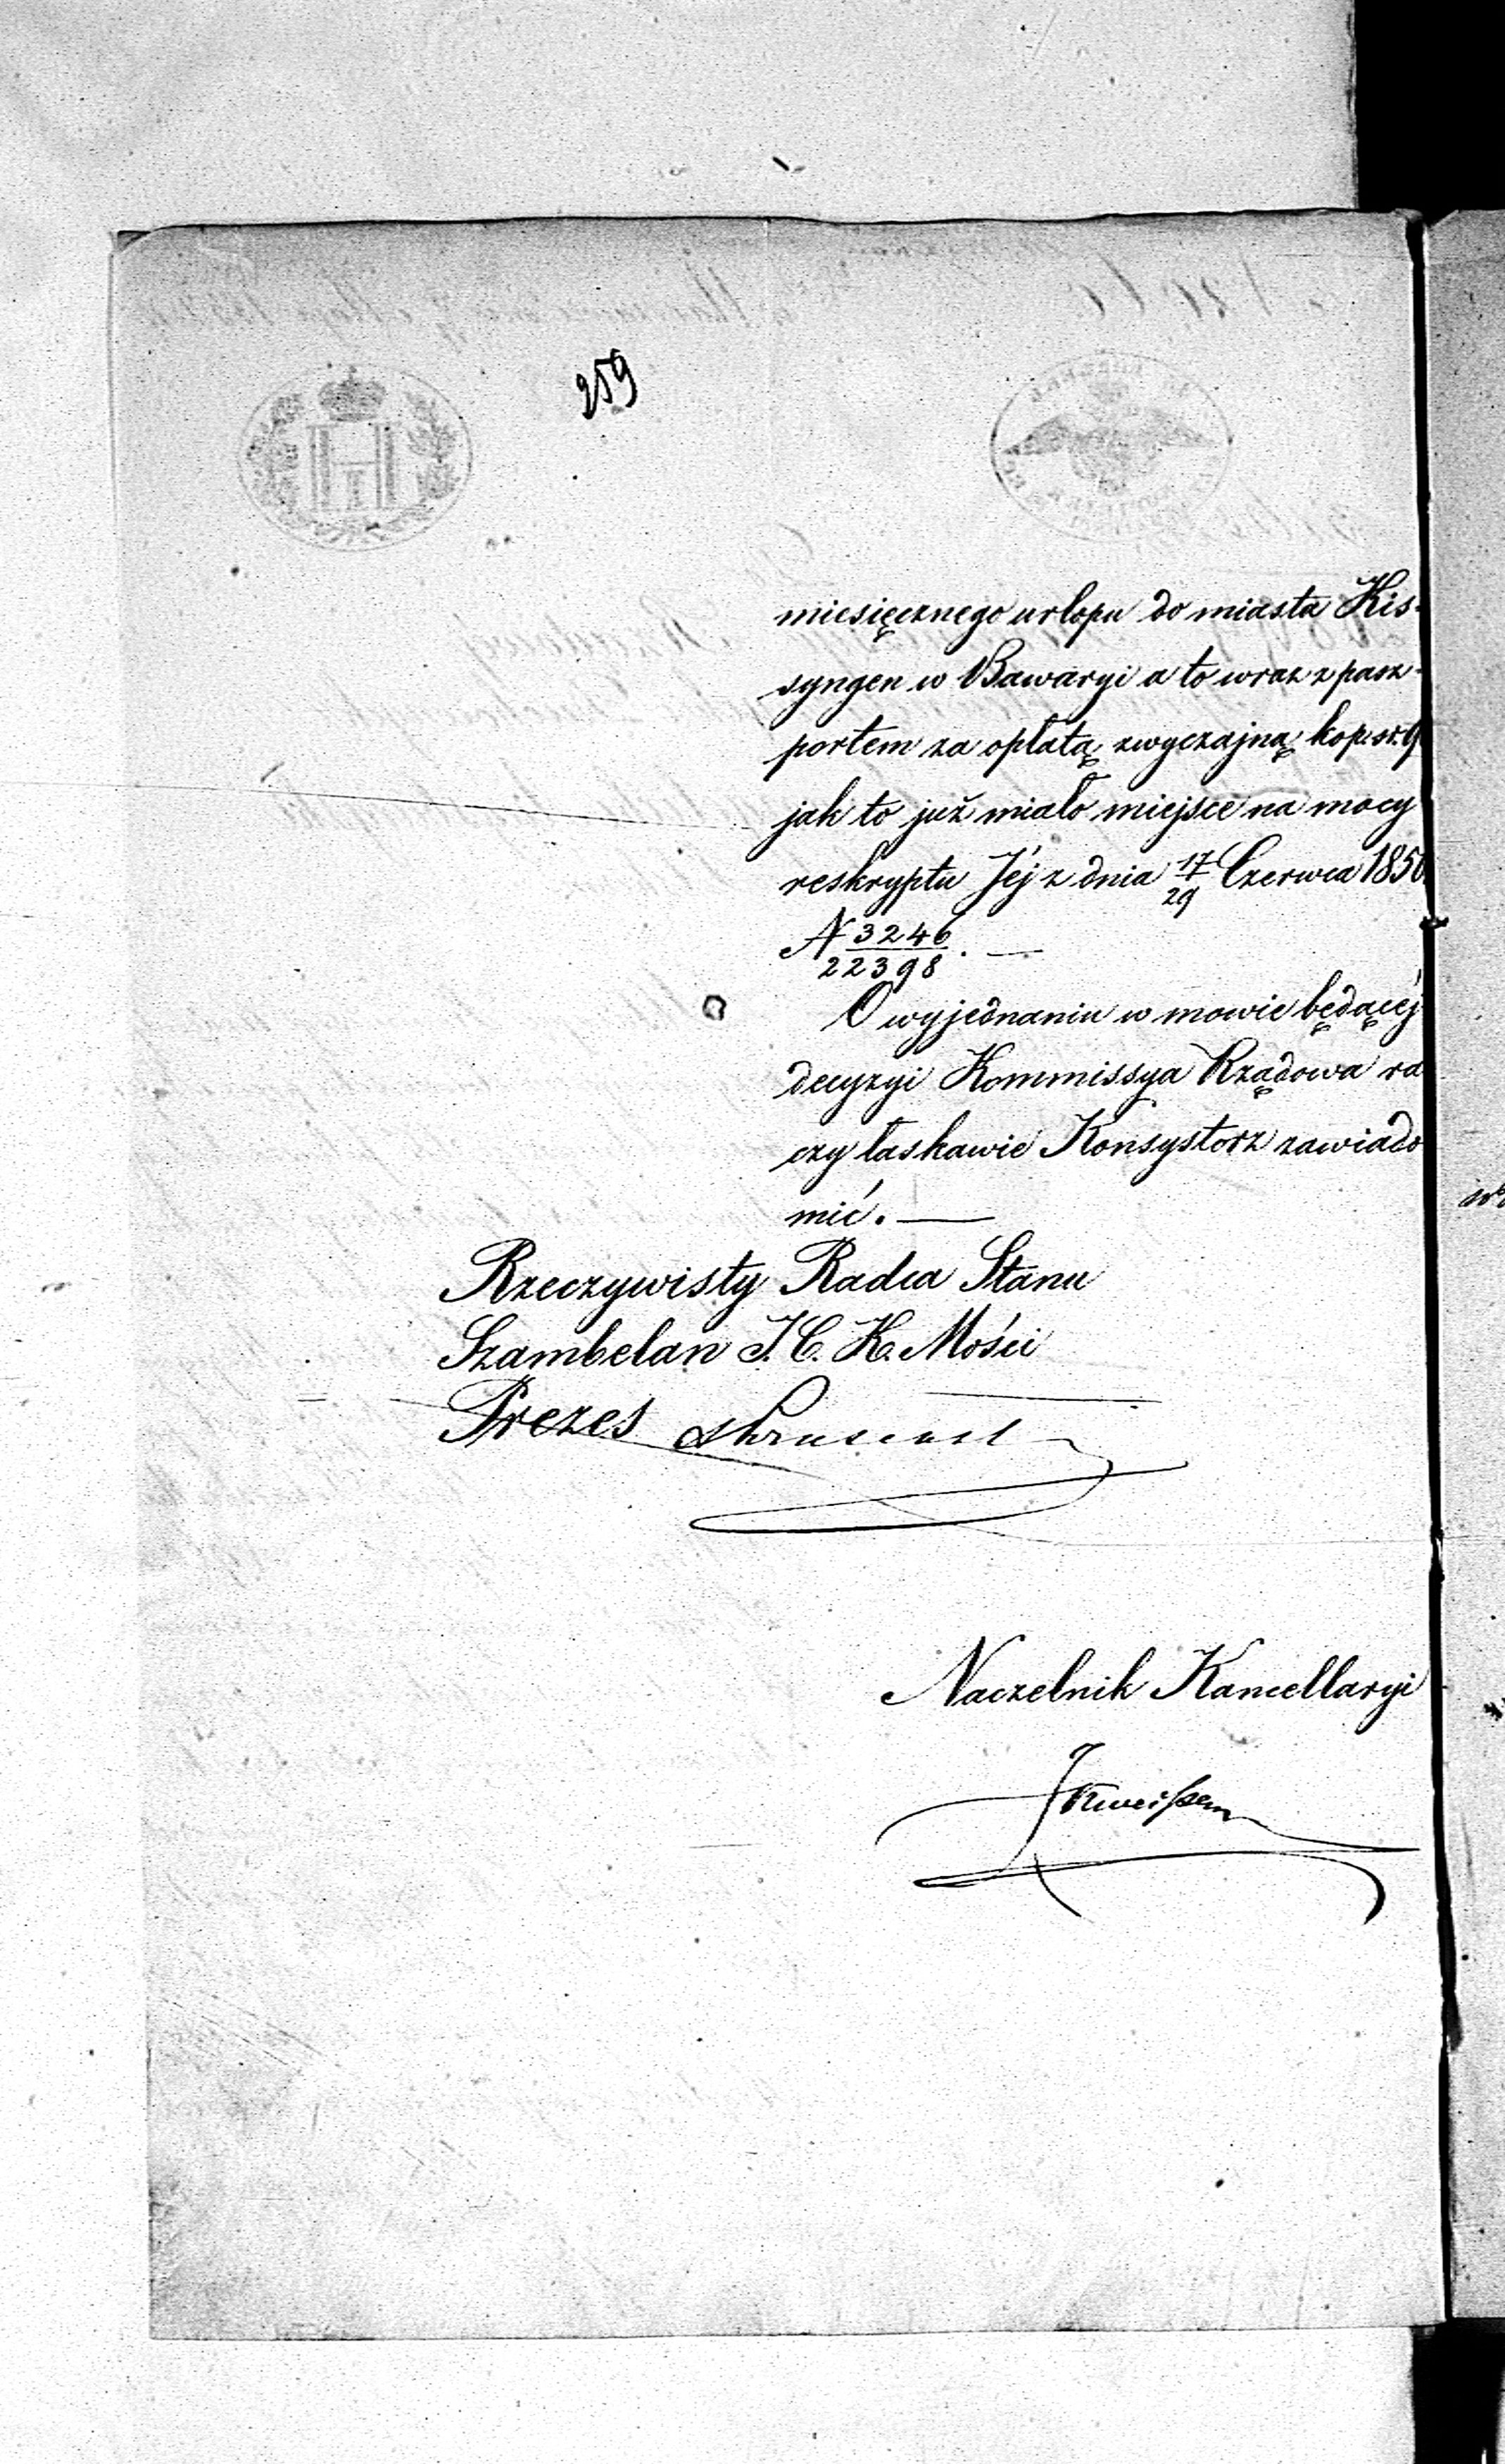 259
miesięcznego urlopu do miasta Kis-
syngen w Bawaryi a to wraz z pasz-
portem za opłatą zwyczajną kop. sr. 9
jak to już miało miejsce na mocy
reskryptu Jéj z dnia 17/29 Czerwca 1850
N 3246/22398. —
O wyjednaniu w mowie będącéj
decyzyi Kommissya Rządowa ra
czy łaskawie Konsystorz zawiado
mić. —
Rzeczywisty Radca Stanu
Szambelan J. C. K. Mości
Prezes
Naczelnik Kancellaryi